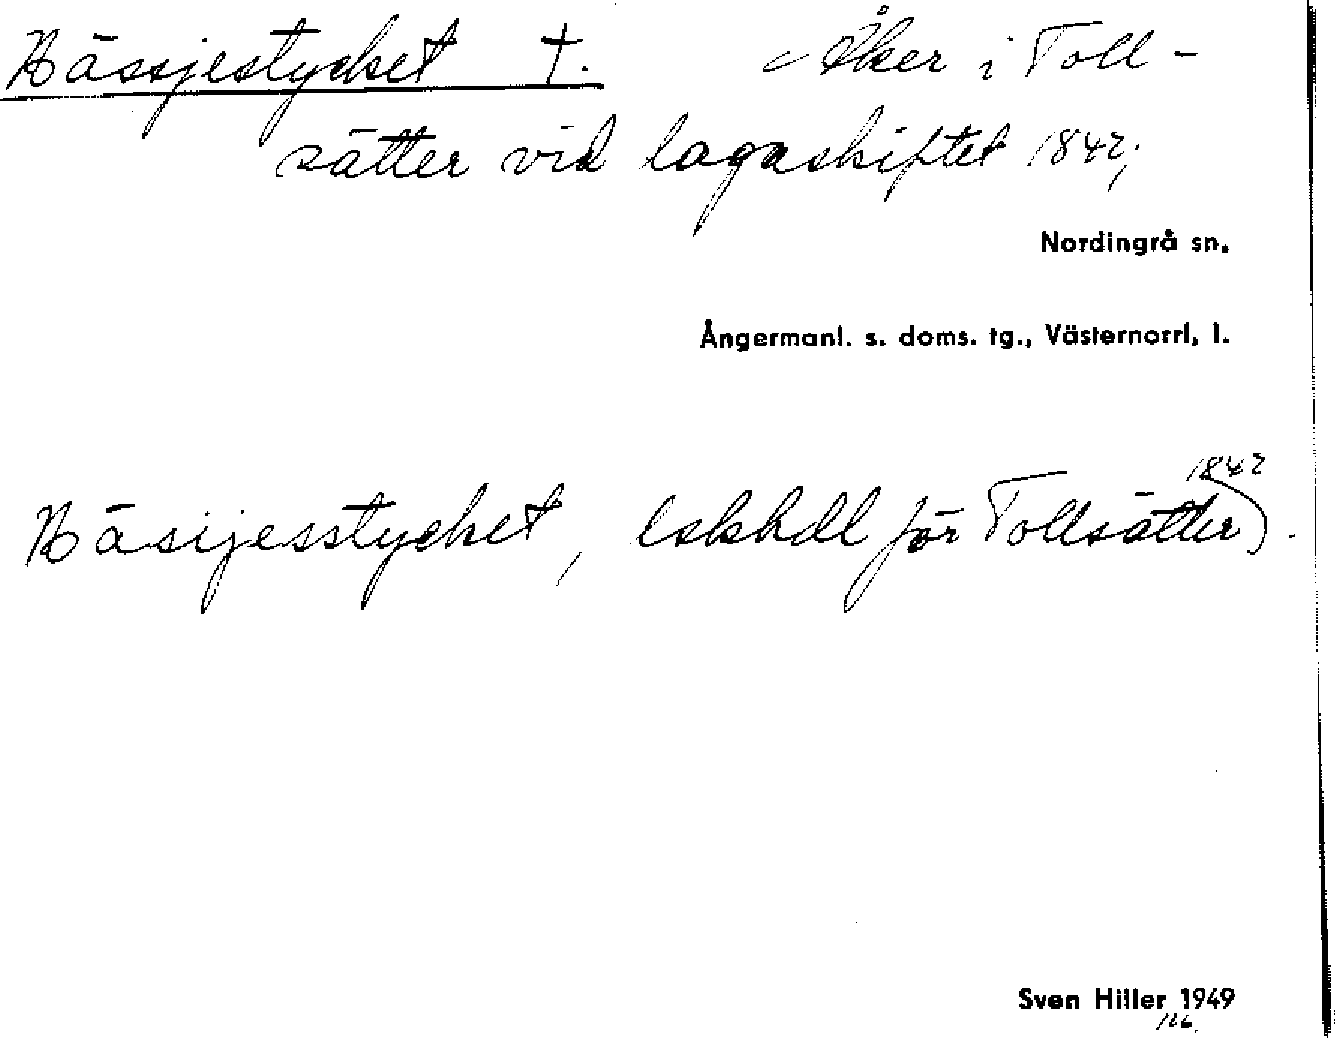 Hässjestycket †. Åker i Toll-
sätter vid lagaskiftet 1842;
Nordingrå sn.
Ångermanl. s. doms. tg., Västernorrl, l.
1842
Häsijesstycket, lskhdl för Tollsätter).
Sven Hiller 1949